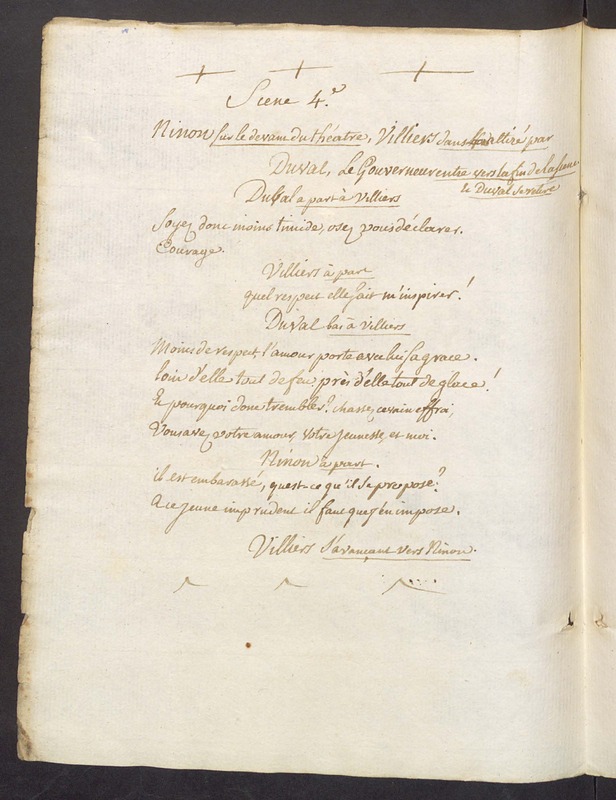 Scene 4.e
Ninon sur le devant du théatre, Villiers dans attiré par
Duval, Le Gouverneur entre vers la fin de la scene
& Duval se retire
Duval a part à Villiers
Soyez donc moins timide, osez vous déclarer.
Courage.
Villiers à part
quel respect elle sait m'inspirer!
Duval bas à Villiers
Moins de respect l'amour porte avec lui sa grace.
loin d'elle tout de feu, près d'elle tout de glace!
Eh pourquoi donc trembler? chassez ce vain effroi,
Vous avez votre amour, votre jeunesse, et moi.
Ninon à part.
il est embarassé, quest-ce qu'il se propose?
A ce jeune imprudent il faut que j'en impose.
Villiers s'avançant vers Ninon.